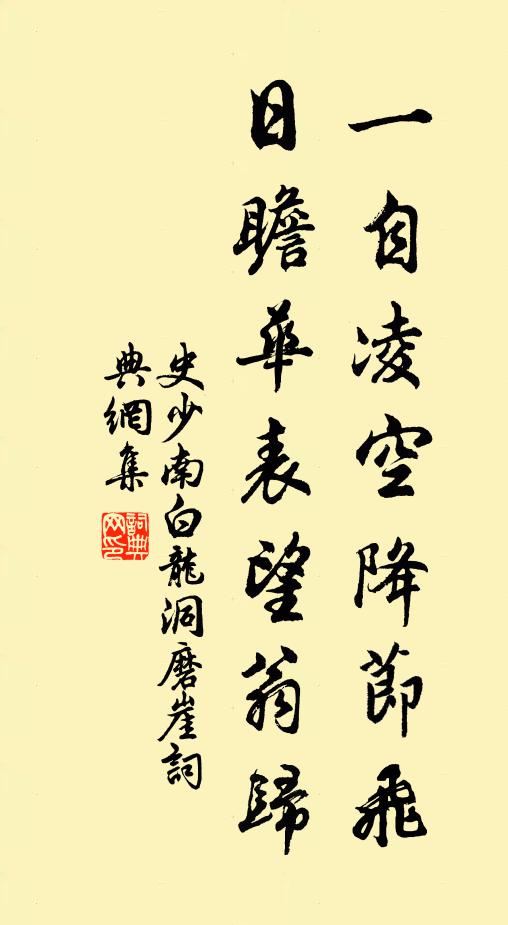 一自凌空降節飛
日瞻華表望翁歸
史少南白龍洞磨崖詞
典網集
詞典網印